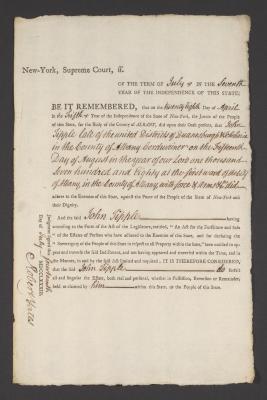 New-York, Supreme Court, ss.
OF THE TERM OF July IN THE Seventh
YEAR OF THE INDEPENDENCE OF THIS STATE;
BE IT REMEMBERED, that on the twenty eighth Day of April
in the Year of the Independence of the State of New-York, the Jurors of the People
of this State, for the Body of the County of ALBANY, did upon their Oath present, that John
Tipple late of the united Districts of Duanesburgh & Schoharie
in the County of Albany Cordwainer on the fifteenth
Day of August in the year of our Lord one thousand
Seven hundred and Eighty at the third ward of the City
of Albany, in the County of Albany with force & Arms &c did
adhere to the Enemies of this State, against the Peace of the People of the State of New-York and
their Dignity.
And the said John Tipple having
according to the Form of the Act of the Legislature, entitled, "An Act for the Forfeiture and Sale
"of the Estates of Persons who have adhered to the Enemies of this State, and for declaring the
"Sovereignty of the People of this State in respect to all Property within the same," been notified to ap-
pear and traverse the said Indictment, and not having appeared and traversed within the Time, and in
the Manner, in and by the said Act limited and required; IT IS THEREFORE CONSIDERED,
that the said John Tipple do forfeit
all and singular the Estate, both real and personal, whether in Possession, Reversion or Remainder,
held or claimed by him within this State, to the People of this State.
Judgment
Day of July MDCCLXXXIII.
Robert Yates